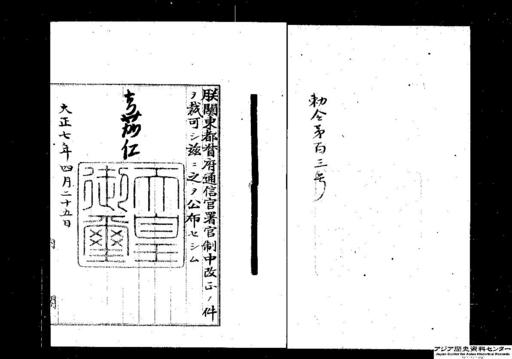 勅令第百三号
朕關東都督府通信官署官制中改正ノ件
ヲ裁可シ玆ニ之ヲ公布セシム
嘉仁
天皇御璽
大正七年四月二十五日
アジア歴史資料センター
Japan Center for Asian Historical Records